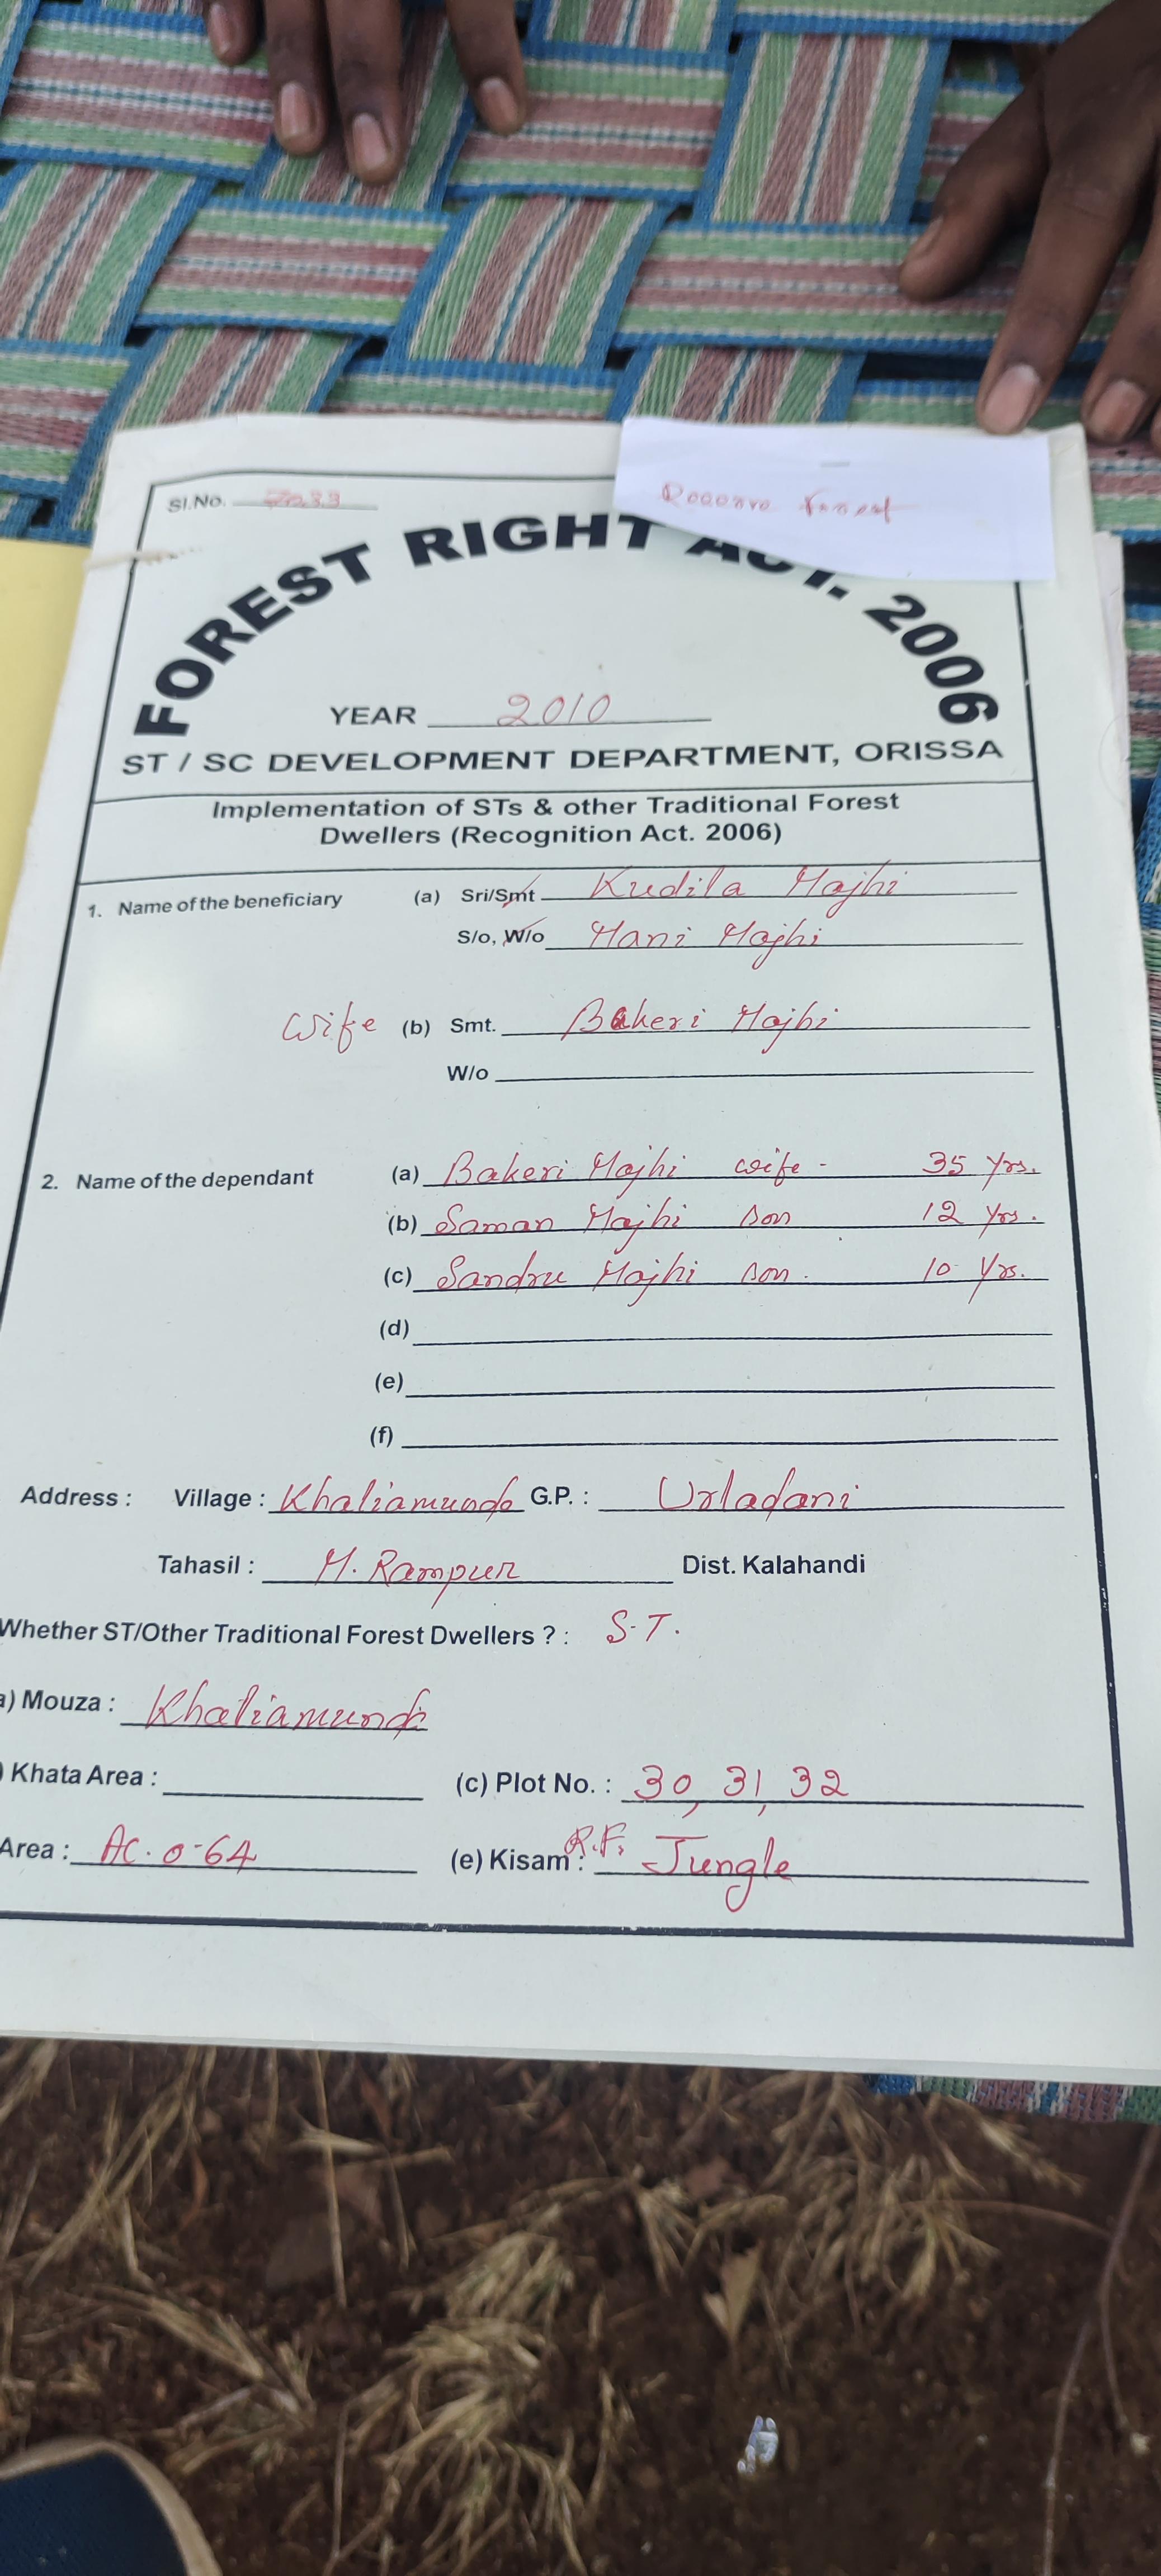 Sl.No. 7033
Reserve Forest
FOREST RIGHT ACT. 2006
YEAR 2010
ST / SC DEVELOPMENT DEPARTMENT, ORISSA
Implementation of STs & other Traditional Forest
Dwellers (Recognition Act. 2006)
1. Name of the beneficiary (a) Sri/Smt Kudila Majhi
S/o, W/o Mani Majhi
wife (b) Smt. Bakeri Majhi
W/o
2. Name of the dependant (a) Bakeri Majhi wife - 35 Yrs.
(b) Saman Majhi son 12 Yrs.
(c) Sandru Majhi son. 10 Yrs.
(d)
(e)
(f)
Address : Village : Khaliamunda G.P. : Urladani
Tahasil : M. Rampur Dist. Kalahandi
Whether ST/Other Traditional Forest Dwellers ? : S.T.
a) Mouza : Khaliamunda
) Khata Area : (c) Plot No. : 30, 31, 32
Area : AC. 0-64 (e) Kisam : R.F. Jungle